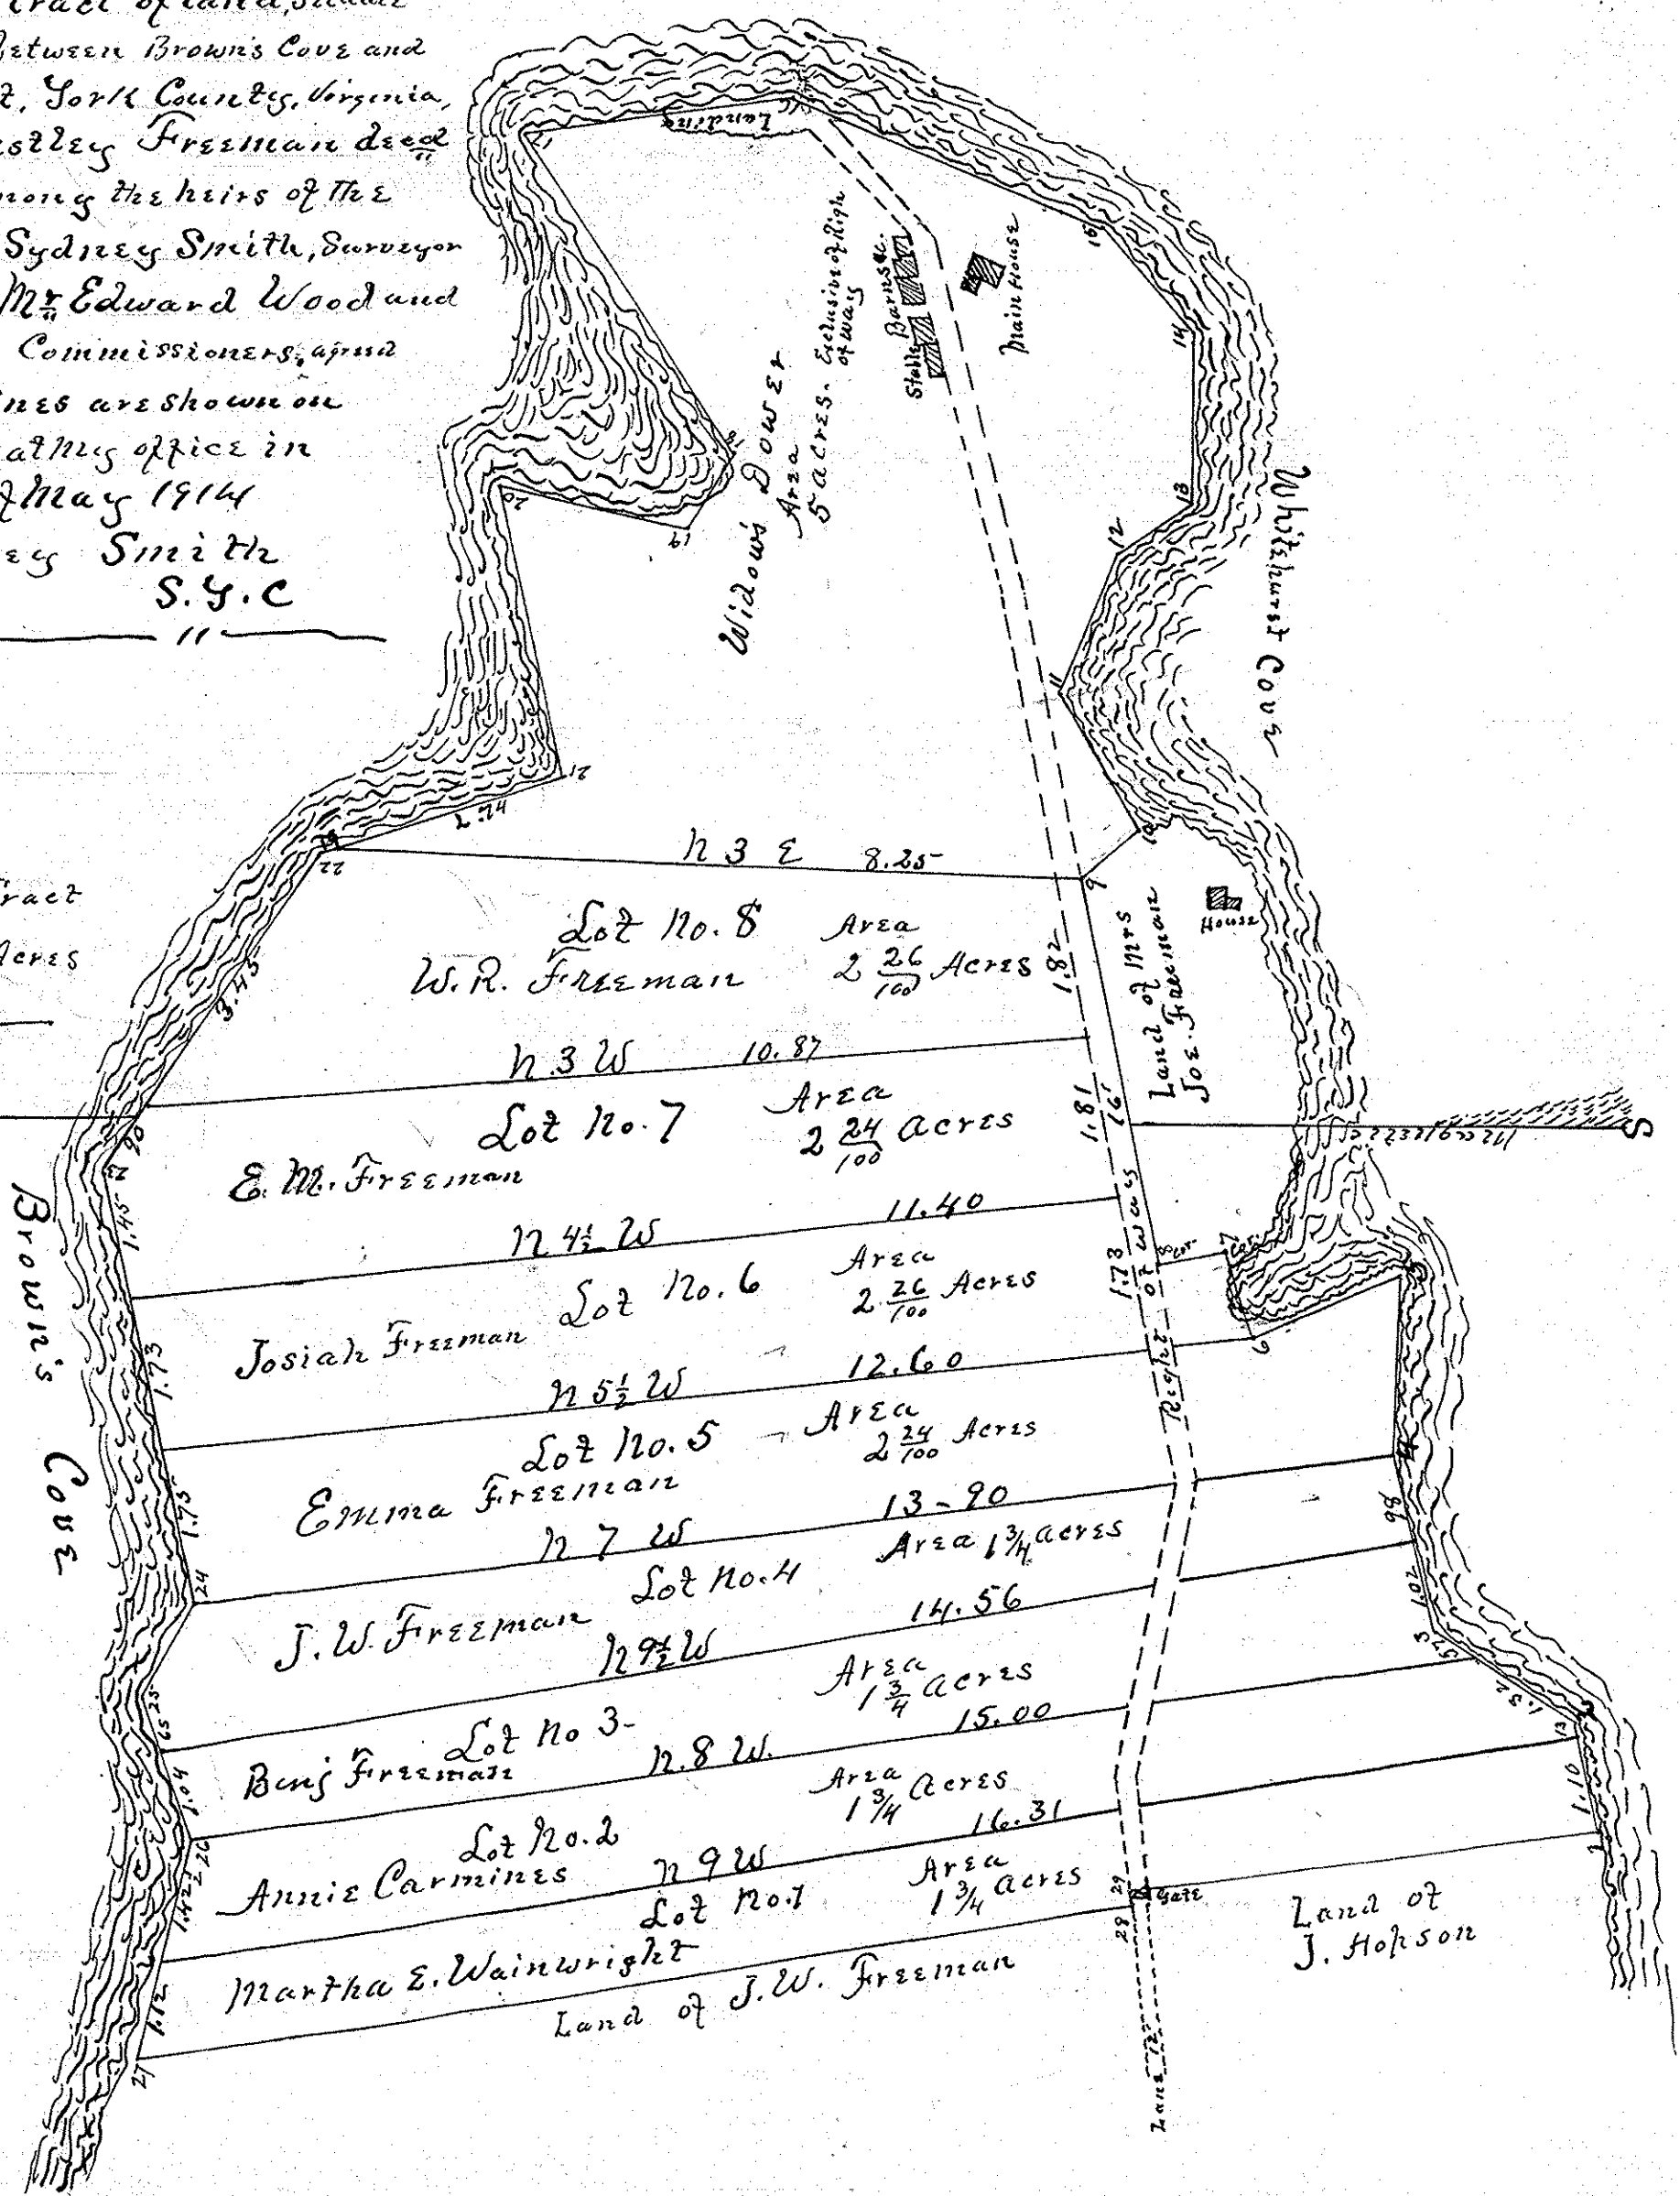 tract of land, situate
Between Brown's Cove and
t, York County, Virginia,
stley Freeman deed
mong the heirs of the
Sydney Smith, Surveyor
Mr Edward Wood and
Commissioners,
ines are shown on
at my office in
of May 1914
ey Smith
S.Y.C
"
ract
Acres
Landing
Widow's Dower
Area
5 acres. Exclusive of Righ
of way
Stable
Barns &c.
Main House
Whitehurst Cove
17
16
14
13
12
11
10
9
19
20
21
22
2.74
3.45
N 3 E 8.25
Lot No. 8
W. R. Freeman
Area
2 26/100 Acres
1.82
Land of Mrs
Joe. Freeman
House
N. 3 W 10.87
Lot No. 7
E. M. Freeman
Area
2 24/100 acres
1.81
16'
S
23
.90
1.45
Brown's Cove
N 4½ W 11.40
Lot No. 6
Josiah Freeman
Area
2.26/100 Acres
1.73
Right of way
8
Cor.
7
Cor.
6
5
1.73
N 5½ W 12.60
Lot No. 5
Emma Freeman
Area
2 24/100 Acres
4
1.75
24
N 7 W 13-90
Lot No. 4
J. W. Freeman
Area 1 ¾ acres
98
1.02
3
N 9½ W 14.56
Lot No 3-
Benj Freeman
Area
1 3/4 acres
25
65
1.04
57
1.32
2
13
N. 8 W. 15.00
Lot No. 2
Annie Carmines
Area
1 ¾ acres
26
1.42
1.10
1
N 9 W 16.31
Lot No. 1
Martha E. Wainwright
Area
1 ¾ acres
1.12
27
28
29
Gate
Land of J. W. Freeman
Lane 12'
Land of
J. Hopson